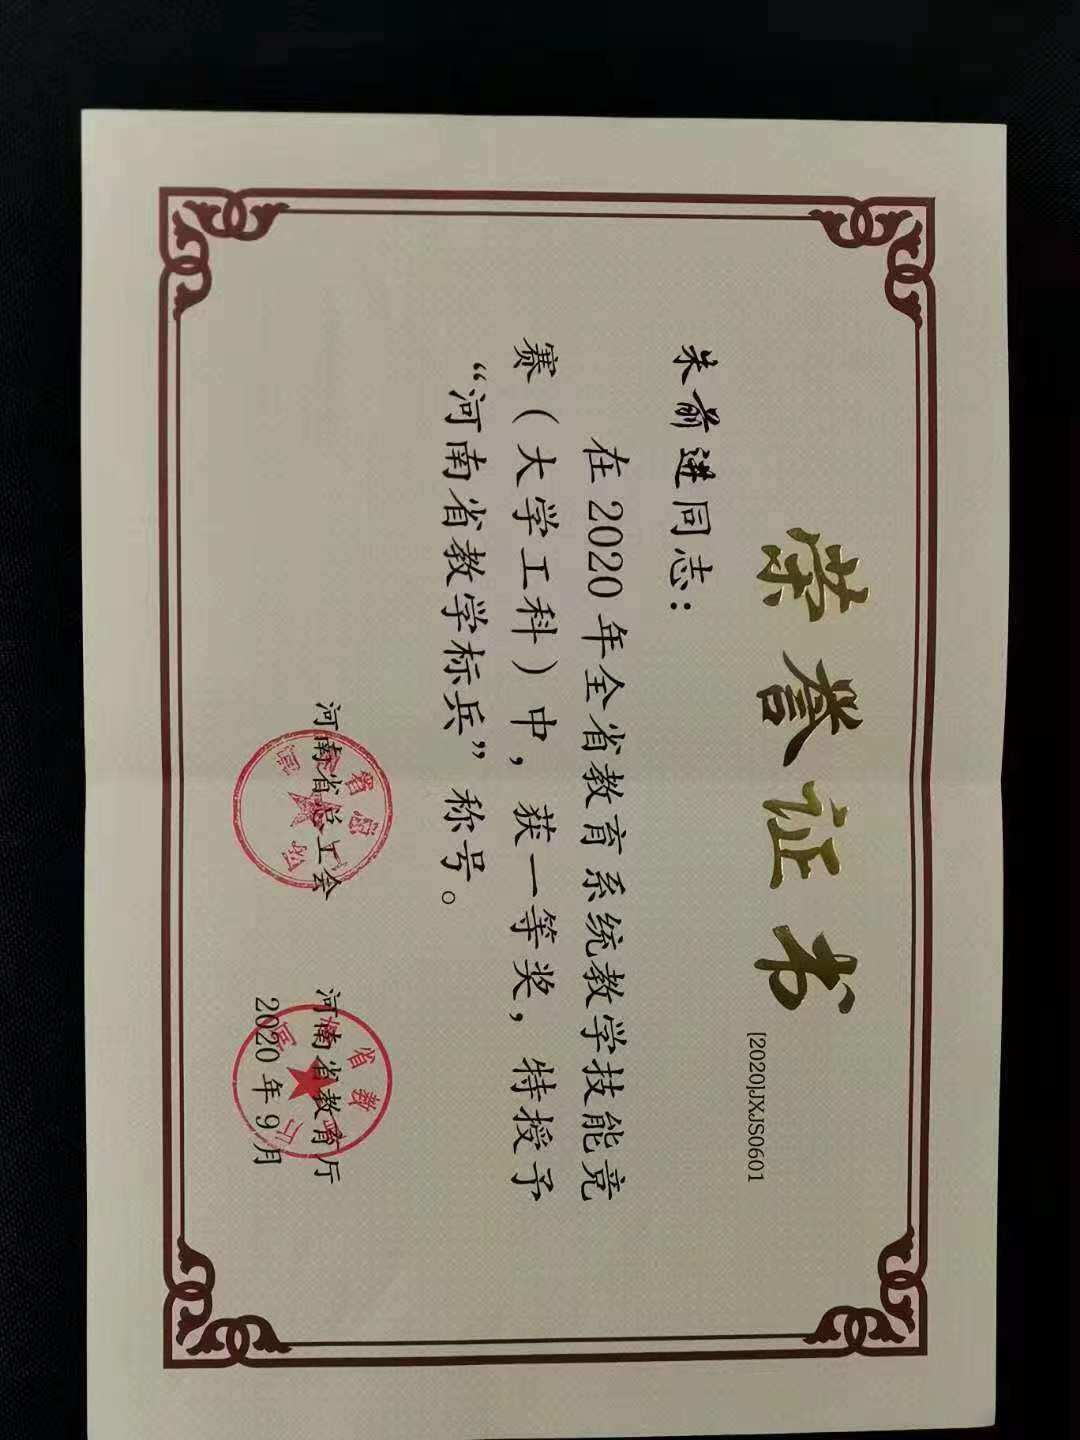 荣誉证书
[2020]JXJS0601
朱前进同志：
在2020年全省教育系统教学技能竞
赛（大学工科）中，获一等奖，特授予
“河南省教学标兵”称号。
河南省总工会
河南省教育厅
2020年9月